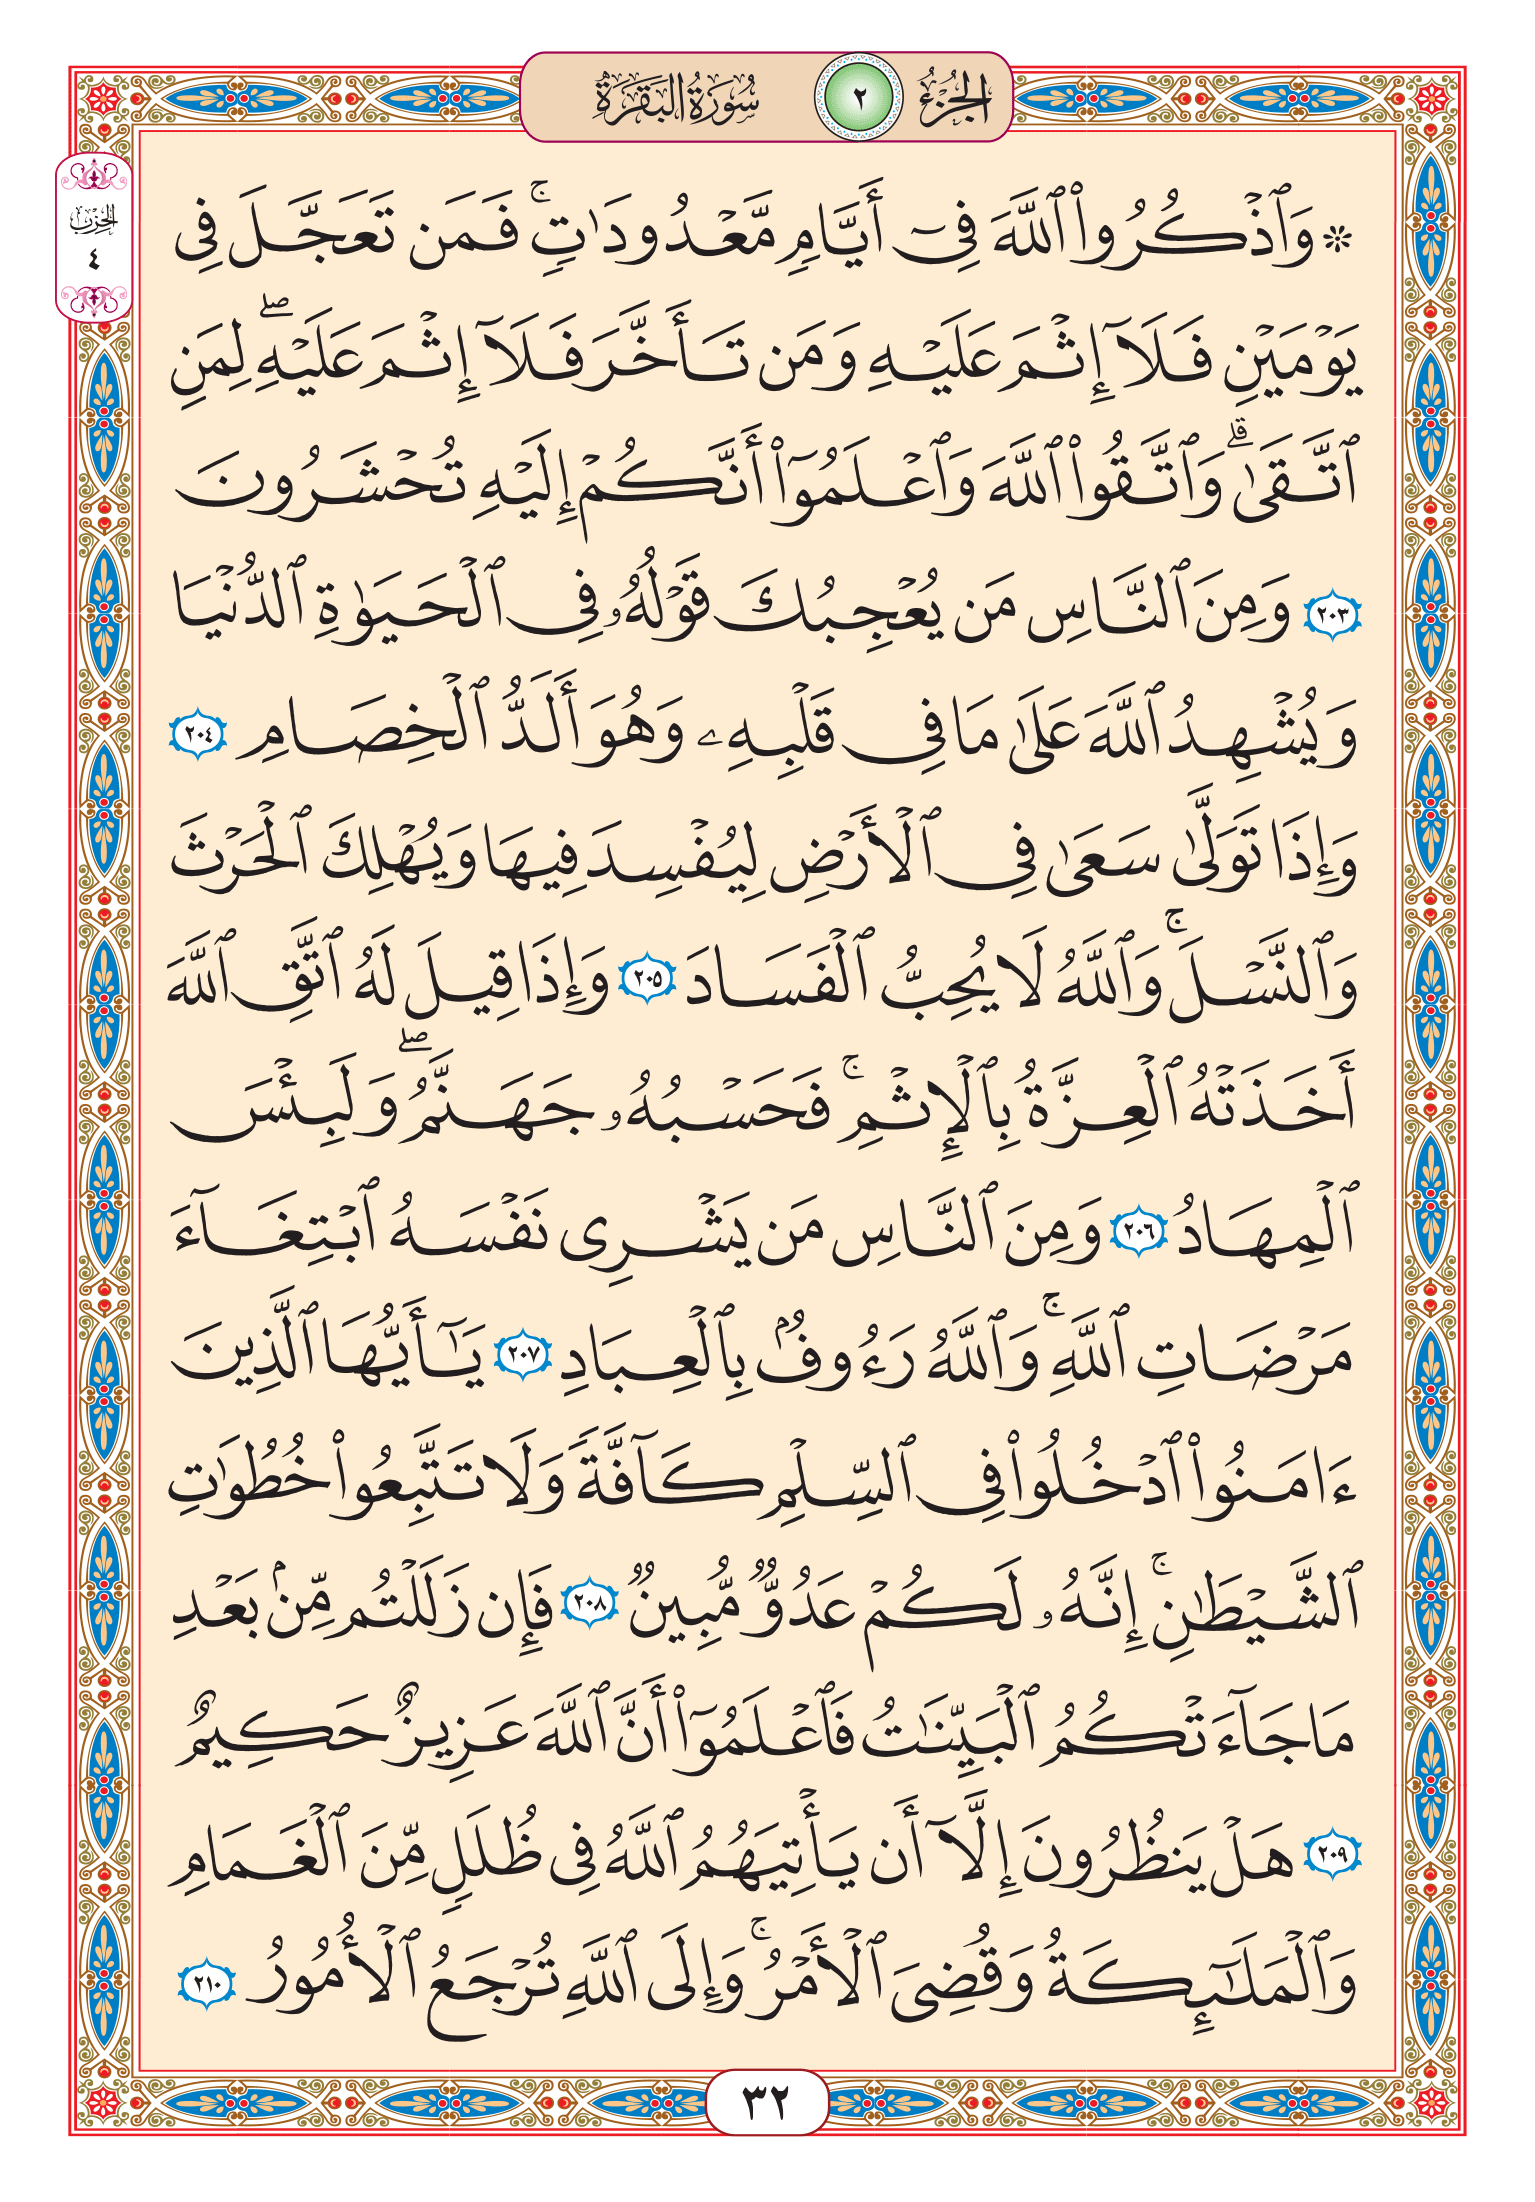 الجزء ٢ سورة البقرة
الحزب
٤
۞ وَٱذۡكُرُواْ ٱللَّهَ فِيٓ أَيَّامٖ مَّعۡدُودَٰتٖۚ فَمَن تَعَجَّلَ فِي
يَوۡمَيۡنِ فَلَآ إِثۡمَ عَلَيۡهِ وَمَن تَأَخَّرَ فَلَآ إِثۡمَ عَلَيۡهِۖ لِمَنِ
ٱتَّقَىٰۗ وَٱتَّقُواْ ٱللَّهَ وَٱعۡلَمُوٓاْ أَنَّكُمۡ إِلَيۡهِ تُحۡشَرُونَ
٢٠٣ وَمِنَ ٱلنَّاسِ مَن يُعۡجِبُكَ قَوۡلُهُۥ فِي ٱلۡحَيَوٰةِ ٱلدُّنۡيَا
وَيُشۡهِدُ ٱللَّهَ عَلَىٰ مَا فِي قَلۡبِهِۦ وَهُوَ أَلَدُّ ٱلۡخِصَامِ ٢٠٤
وَإِذَا تَوَلَّىٰ سَعَىٰ فِي ٱلۡأَرۡضِ لِيُفۡسِدَ فِيهَا وَيُهۡلِكَ ٱلۡحَرۡثَ
وَٱلنَّسۡلَۚ وَٱللَّهُ لَا يُحِبُّ ٱلۡفَسَادَ ٢٠٥ وَإِذَا قِيلَ لَهُ ٱتَّقِ ٱللَّهَ
أَخَذَتۡهُ ٱلۡعِزَّةُ بِٱلۡإِثۡمِۚ فَحَسۡبُهُۥ جَهَنَّمُۖ وَلَبِئۡسَ
ٱلۡمِهَادُ ٢٠٦ وَمِنَ ٱلنَّاسِ مَن يَشۡرِي نَفۡسَهُ ٱبۡتِغَآءَ
مَرۡضَاتِ ٱللَّهِۚ وَٱللَّهُ رَءُوفُۢ بِٱلۡعِبَادِ ٢٠٧ يَٰٓأَيُّهَا ٱلَّذِينَ
ءَامَنُواْ ٱدۡخُلُواْ فِي ٱلسِّلۡمِ كَآفَّةٗ وَلَا تَتَّبِعُواْ خُطُوَٰتِ
ٱلشَّيۡطَٰنِۚ إِنَّهُۥ لَكُمۡ عَدُوّٞ مُّبِينٞ ٢٠٨ فَإِن زَلَلۡتُم مِّنۢ بَعۡدِ
مَا جَآءَتۡكُمُ ٱلۡبَيِّنَٰتُ فَٱعۡلَمُوٓاْ أَنَّ ٱللَّهَ عَزِيزٌ حَكِيمٌ
٢٠٩ هَلۡ يَنظُرُونَ إِلَّآ أَن يَأۡتِيَهُمُ ٱللَّهُ فِي ظُلَلٖ مِّنَ ٱلۡغَمَامِ
وَٱلۡمَلَٰٓئِكَةُ وَقُضِيَ ٱلۡأَمۡرُۚ وَإِلَى ٱللَّهِ تُرۡجَعُ ٱلۡأُمُورُ ٢١٠
٣٢